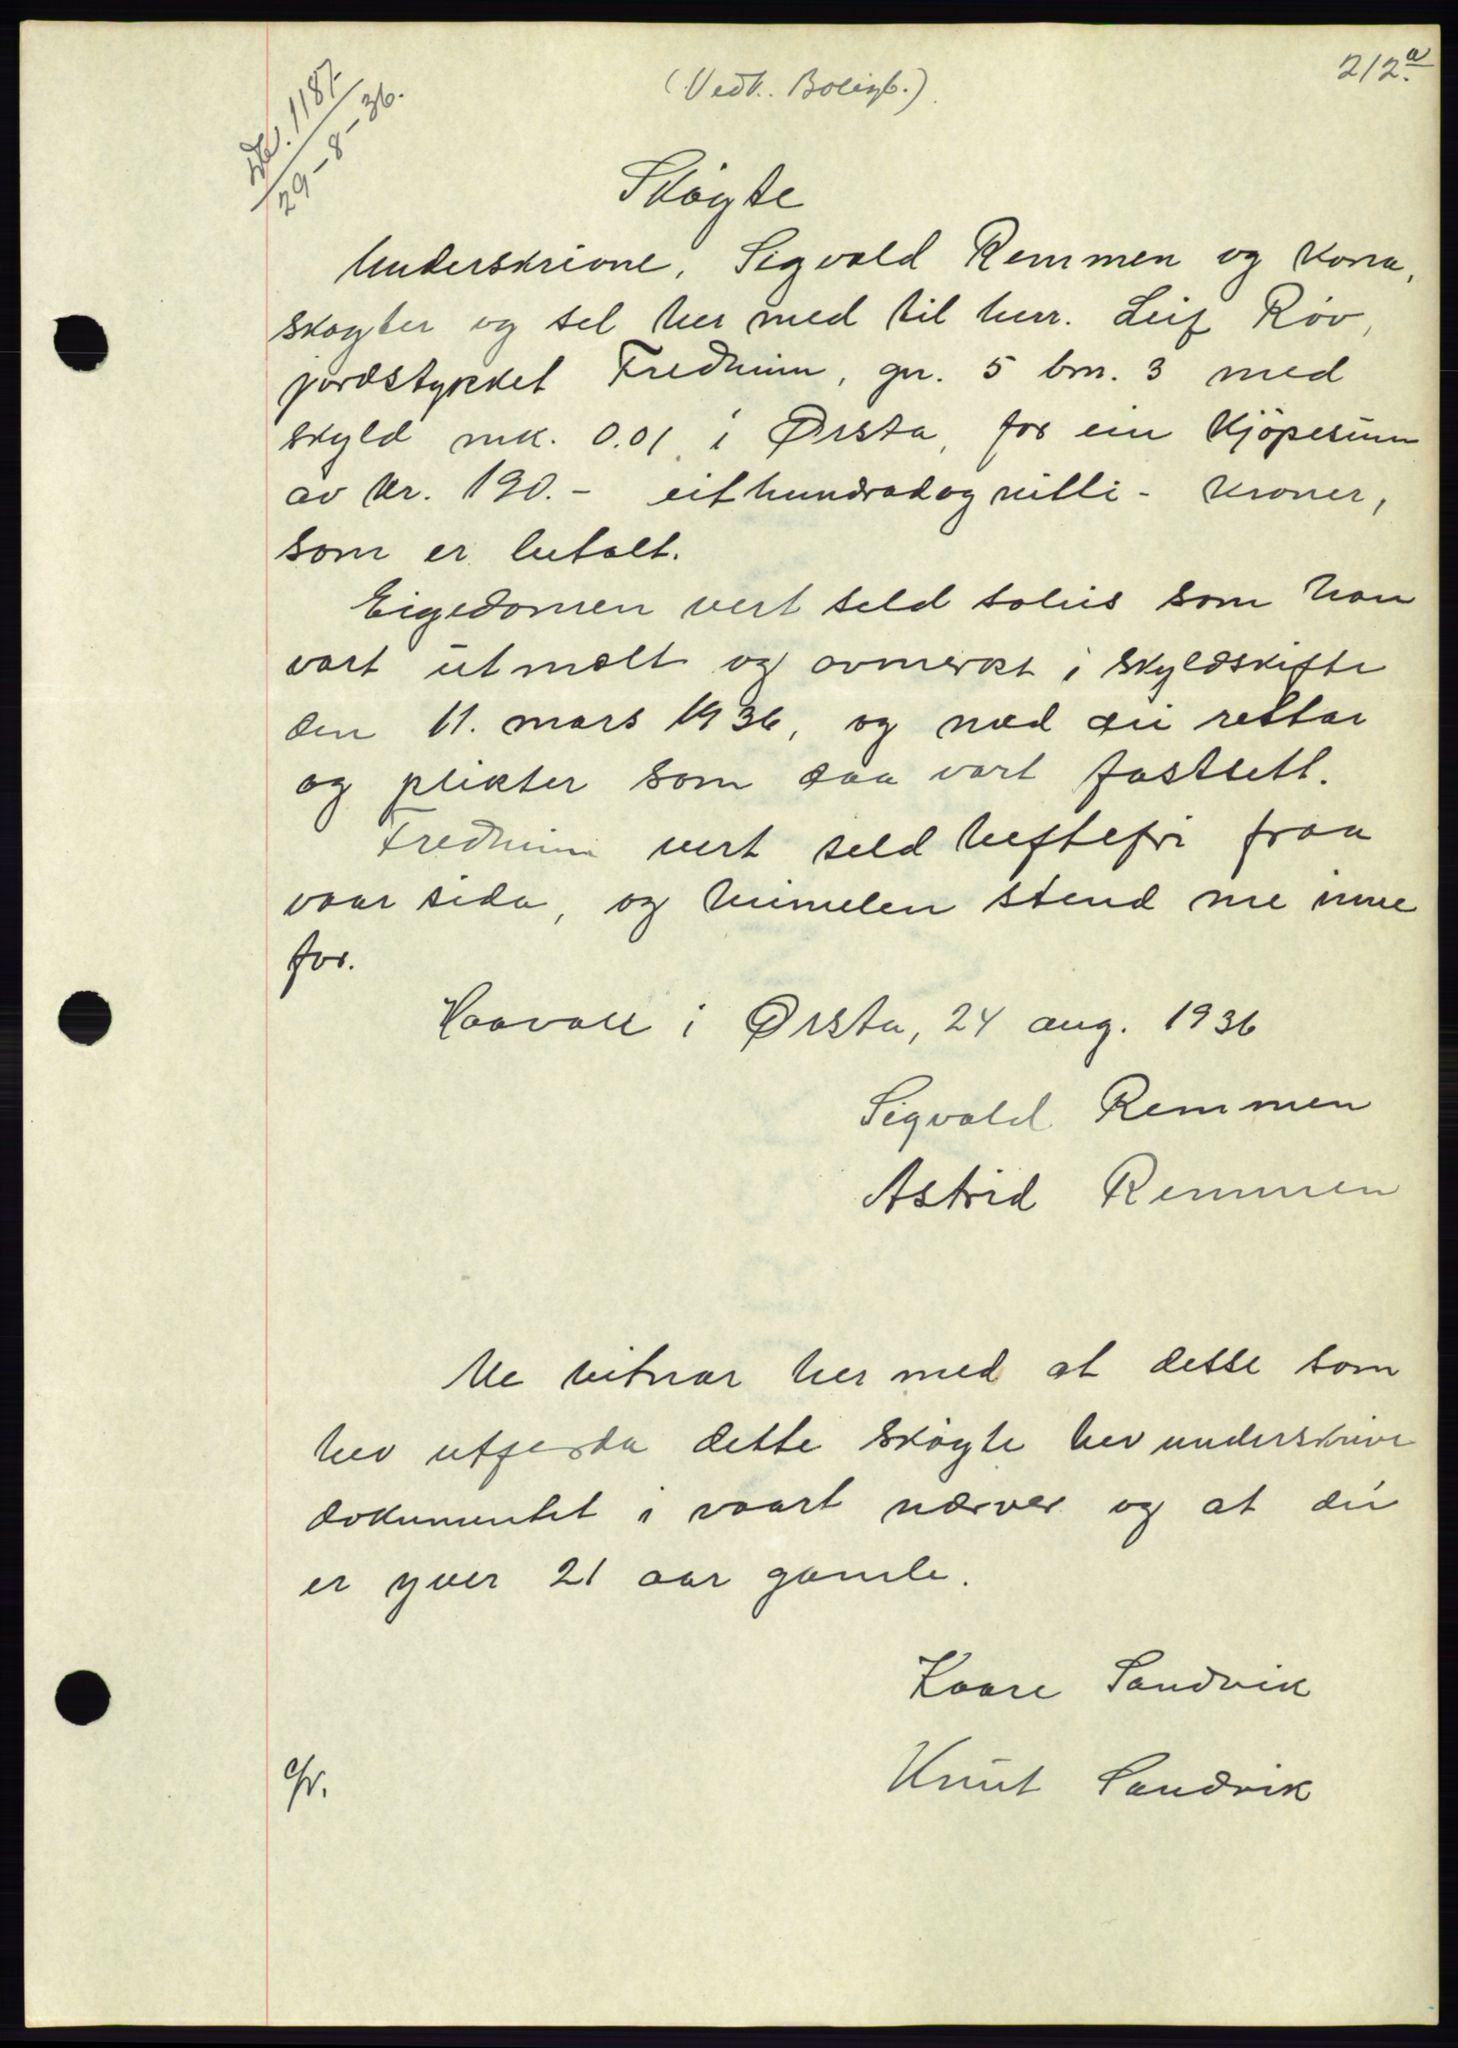 212a.
(Vedk. Boligb.)
No. 1187
29-8-36.
Skøgte
Underskrivne, Sigvald Remmen og kona,
skøgter og sel her med til herr. Leif Röv,
jordstykket Fredheim, gn. 5 bn. 3 med
skyld mk. 0.01 i Ørsta, for ein kjöpesum
av kr. 190.- eithundradognitti - kroner,
som er betalt.
Eigedomen vert seld soleis som han
vart útmælt og avmerkt i skyldskifte
den 11. mars 1936, og med dei rettar
og plikter som daa vart fastsett.
Fredheim vert seld heftefri fraa
vaar sida, og heimelen stend me inne
for.
Haavoll i Ørsta, 24 aug. 1936
Sigvald Remmen
Astrid Remmen
Me vitnar her med at desse som
hev utferda dette skøgte hev underskrive
dokumentet i vaart nærver og at dei
er yver 21 aar gamle.
Kaare Sandvik
Knút Sandvik